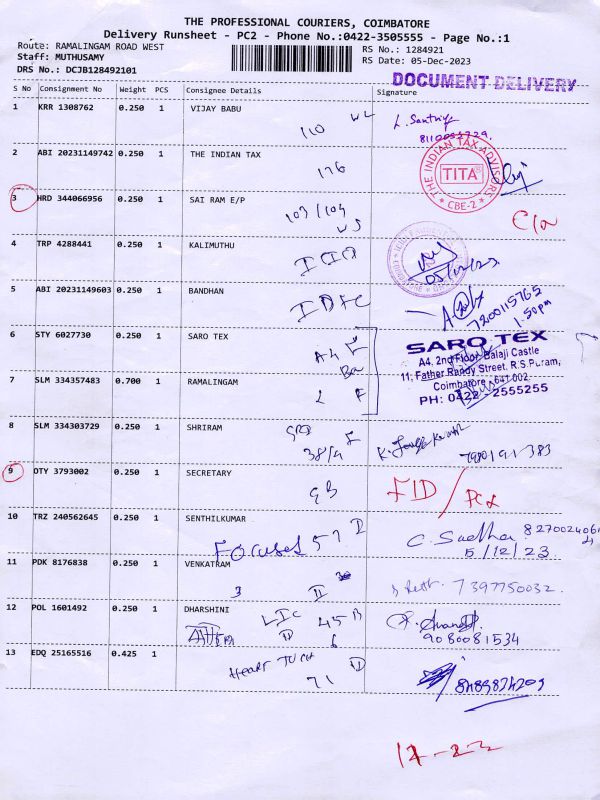 THE PROFESSIONAL COURIERS, COIMBATORE
Delivery Runsheet - PC2 - Phone No.:0422-3505555 - Page No.:1
Route: RAMALINGAM ROAD WEST
RS No.: 1284921
Staff: MUTHUSAMY
RS Date: 05-Dec-2023
DRS No.: DCJB128492101
DOCUMENT DELIVERY
S No Consignment No Weight PCS Consignee Details Signature
1 KRR 1308762 0.250 1 VIJAY BABU
110
2 ABI 20231149742 0.250 1 THE INDIAN TAX
176
THE INDIAN TAX ADVISORS
TITA
CBE-2
3 HRD 344066956 0.250 1 SAI RAM E/P
103/104
4 TRP 4288441 0.250 1 KALIMUTHU
ICICI
05/12/23
5 ABI 20231149603 0.250 1 BANDHAN
IDFC
7200115765
1.50pm
6 STY 6027730 0.250 1 SARO TEX
A4
SARO TEX
A4, 2nd Floor, Balaji Castle
11, Father Randy Street, R.S.Puram,
Coimbatore - 641 002.
PH: 0422 - 2555255
7 SLM 334357483 0.700 1 RAMALINGAM
8 SLM 334303729 0.250 1 SHRIRAM
38/4
9 OTY 3793002 0.250 1 SECRETARY
GB
FID/
10 TRZ 240562645 0.250 1 SENTHILKUMAR
Focuses 57 D
C. Sudha
5/12/23
11 PDK 8176838 0.250 1 VENKATRAM
3 II
7397750032.
12 POL 1601492 0.250 1 DHARSHINI
LIC 45 B
6
9080081534
13 EDQ 25165516 0.425 1
HEART TUCH
71